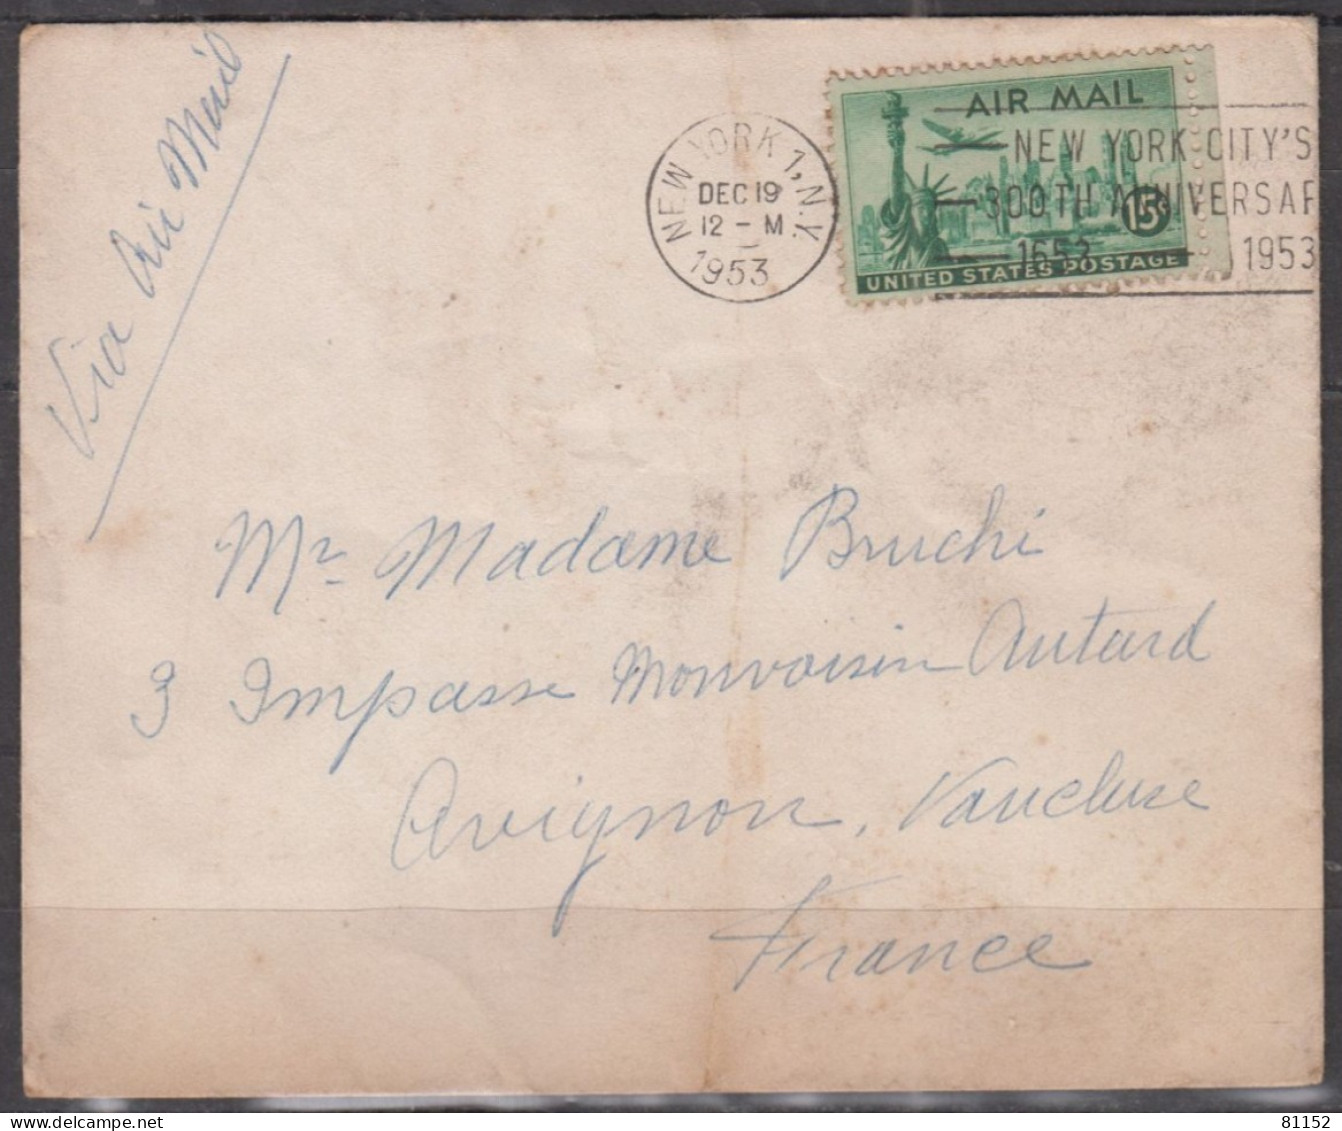 Via Air Mail
NEW YORK 1, N.Y.
DEC 19
12 - M
1953
AIR MAIL
15¢
UNITED STATES POSTAGE
NEW YORK CITY'S
300TH ANNIVERSAR
1653 1953
Mr Madame Bruchi
3 Impasse Monvoisin Autard
Avignon, Vaucluse
France
81152